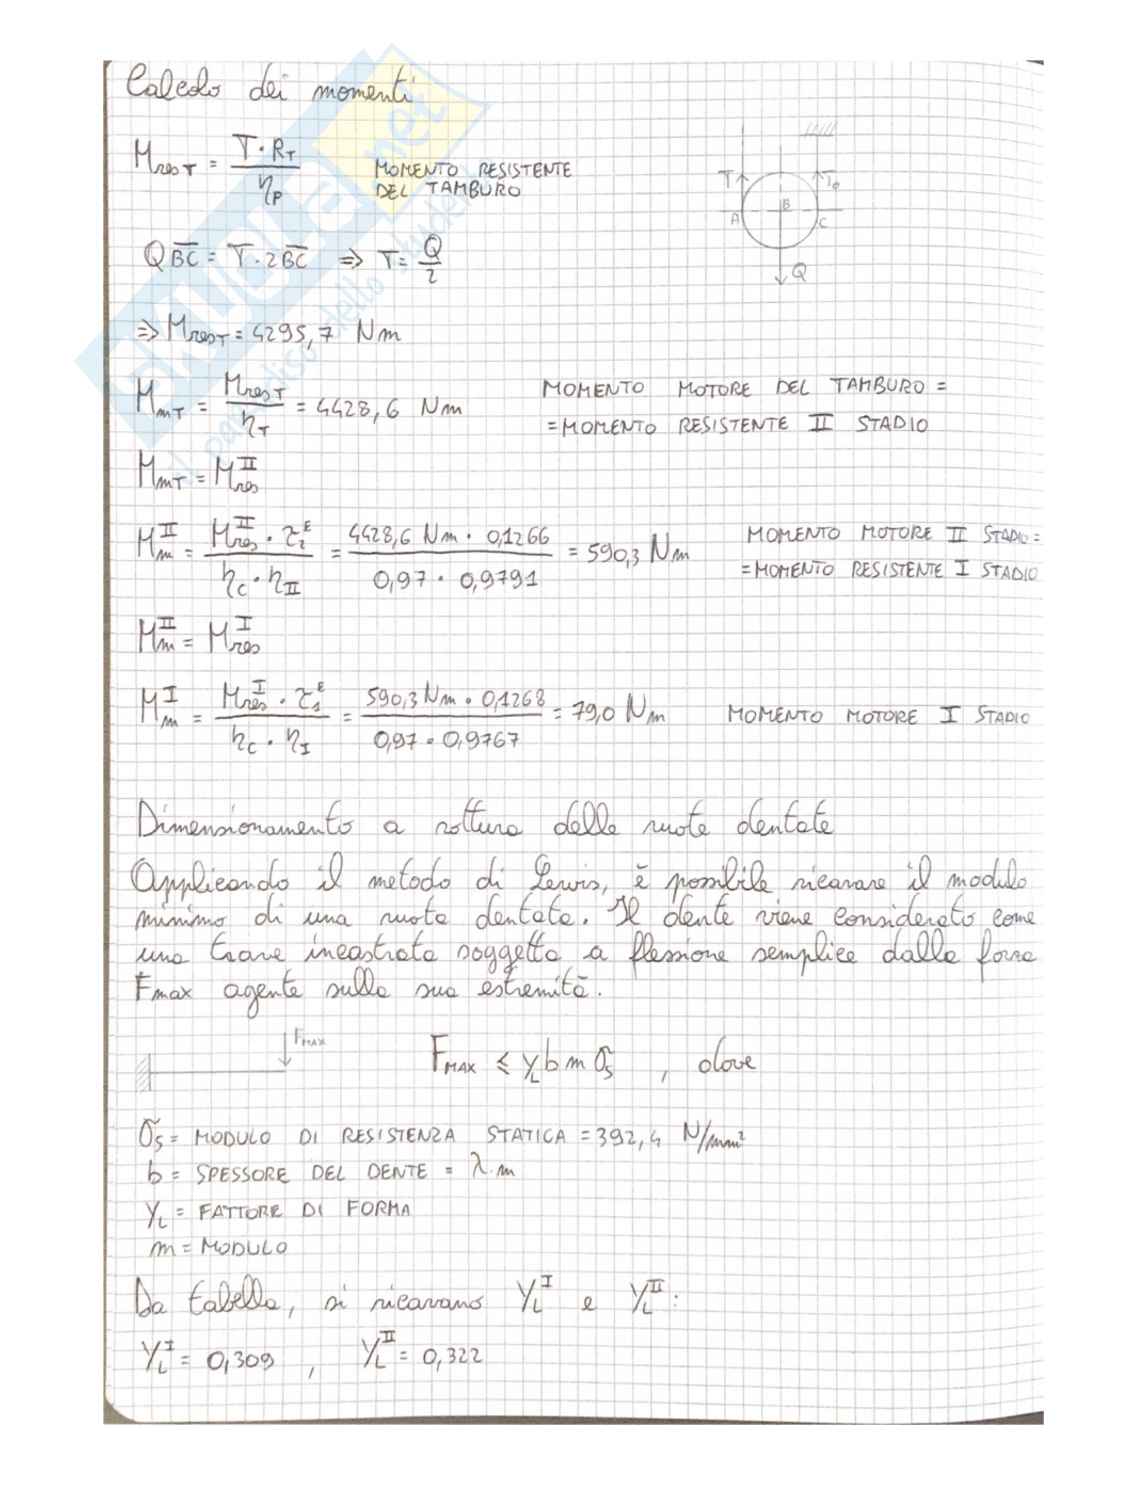 Calcolo dei momenti
M_resT = T · R_T / η_P
MOMENTO RESISTENTE
DEL TAMBURO
T T_0
A B C
Q
Q B̅C̅ = T · 2 B̅C̅ ⇒ T = Q/2
⇒ M_resT = 4295,7 Nm
M_mT = M_resT / η_T = 4428,6 Nm
MOMENTO MOTORE DEL TAMBURO =
= MOMENTO RESISTENTE II STADIO
M_mT = M_res^II
M_m^II = M_res^II · τ_2^E / η_C · η_II = 4428,6 Nm · 0,1266 / 0,97 · 0,9791 = 590,3 Nm
MOMENTO MOTORE II STADIO =
= MOMENTO RESISTENTE I STADIO
M_m^II = M_res^I
M_m^I = M_res^I · τ_1^E / η_C · η_I = 590,3 Nm · 0,1268 / 0,97 · 0,9767 = 79,0 Nm MOMENTO MOTORE I STADIO
Dimensionamento a rottura delle ruote dentate
Applicando il metodo di Lewis, è possibile ricavare il modulo
minimo di una ruota dentata. Il dente viene considerato come
una trave incastrata soggetta a flessione semplice dalla forza
Fmax agente sulla sua estremità.
F_MAX
F_MAX ≤ y_L b m σ_s , dove
σ_s = MODULO DI RESISTENZA STATICA = 392,4 N/mm²
b = SPESSORE DEL DENTE = λ·m
Y_L = FATTORE DI FORMA
m = MODULO
Da tabella, si ricavano Y_L^I e Y_L^II :
Y_L^I = 0,309 , Y_L^II = 0,322
skuola.net
il paradiso dello stude